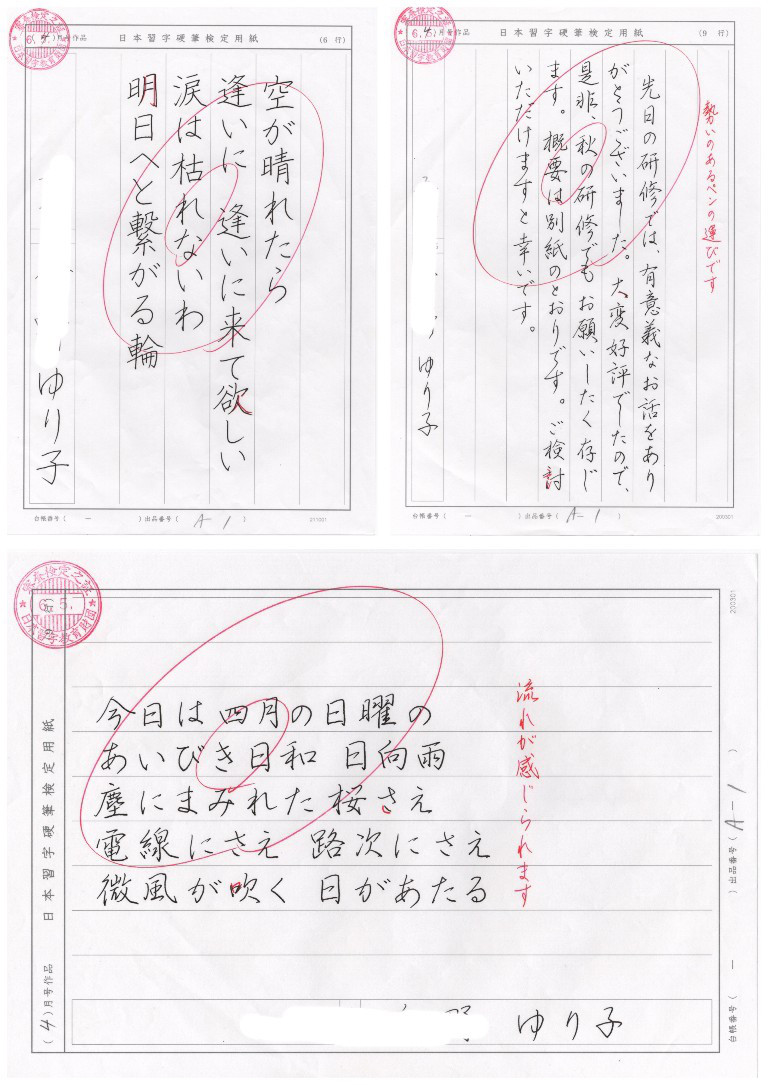 日本習字硬筆検定用紙
(6 行)
(4)月号作品
6. 4.
空が晴れたら
逢いに 逢いに来て欲しい
涙は枯れないわ
明日へと繋がる輪
ゆり子
台帳番号( ー )出品番号( A-1 )
200301
日本習字硬筆検定用紙
(9 行)
(4)月号作品
6. 4.
勢いのあるペンの運びです
先日の研修では、有意義なお話をあり
がとうございました。大変好評でしたので、
是非、秋の研修でもお願いしたく存じ
ます。概要は別紙のとおりです。ご検討
いただけますと幸いです。
ゆり子
台帳番号( ー )出品番号( A-1 )
200301
審査検定之証
6. 5.
日本習字教育財団
日本習字硬筆検定用紙
(4)月号作品
今日は四月の日曜の
あいびき日和 日向雨
塵にまみれた桜さえ
電線にさえ 路次にさえ
微風が吹く 日があたる
流れが感じられます
野 ゆり子
200301
台帳番号( ー )出品番号( A-1 )